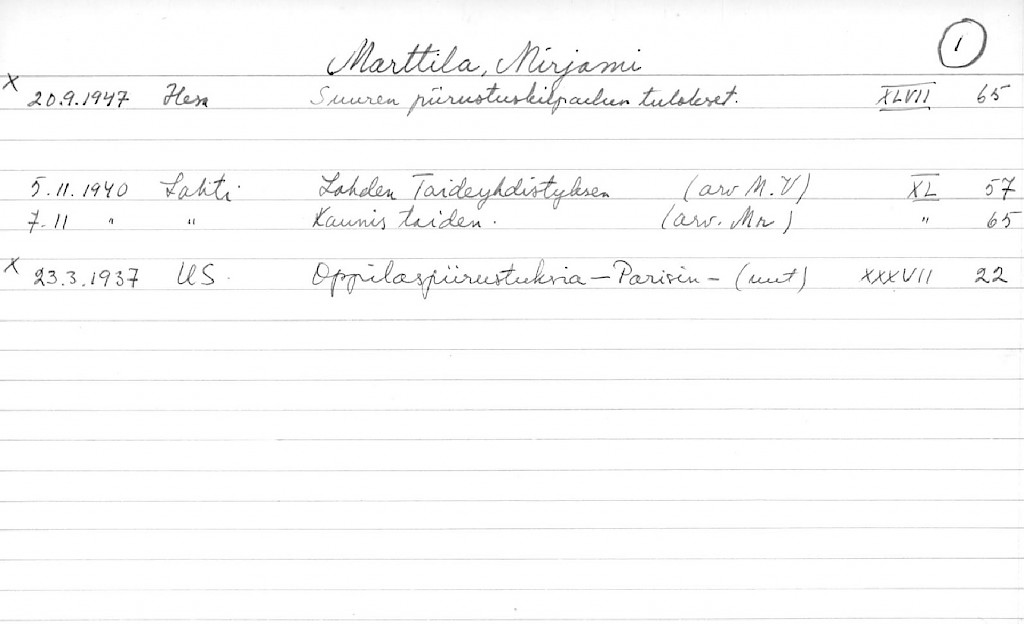 1
Marttila, Mirjami
X 20.9.1947 Hesa Suuren piirustuskilpailun tulokset. XLVII 65
5.11.1940 Lahti Lahden Taideyhdistyksen (arv M.V) XL 57
7.11 " " Kaunis taiden. (arv. Mr.) " 65
X 23.3.1937 US. Oppilaspiirustuksia - Parisin - (uut) XXXVII 22